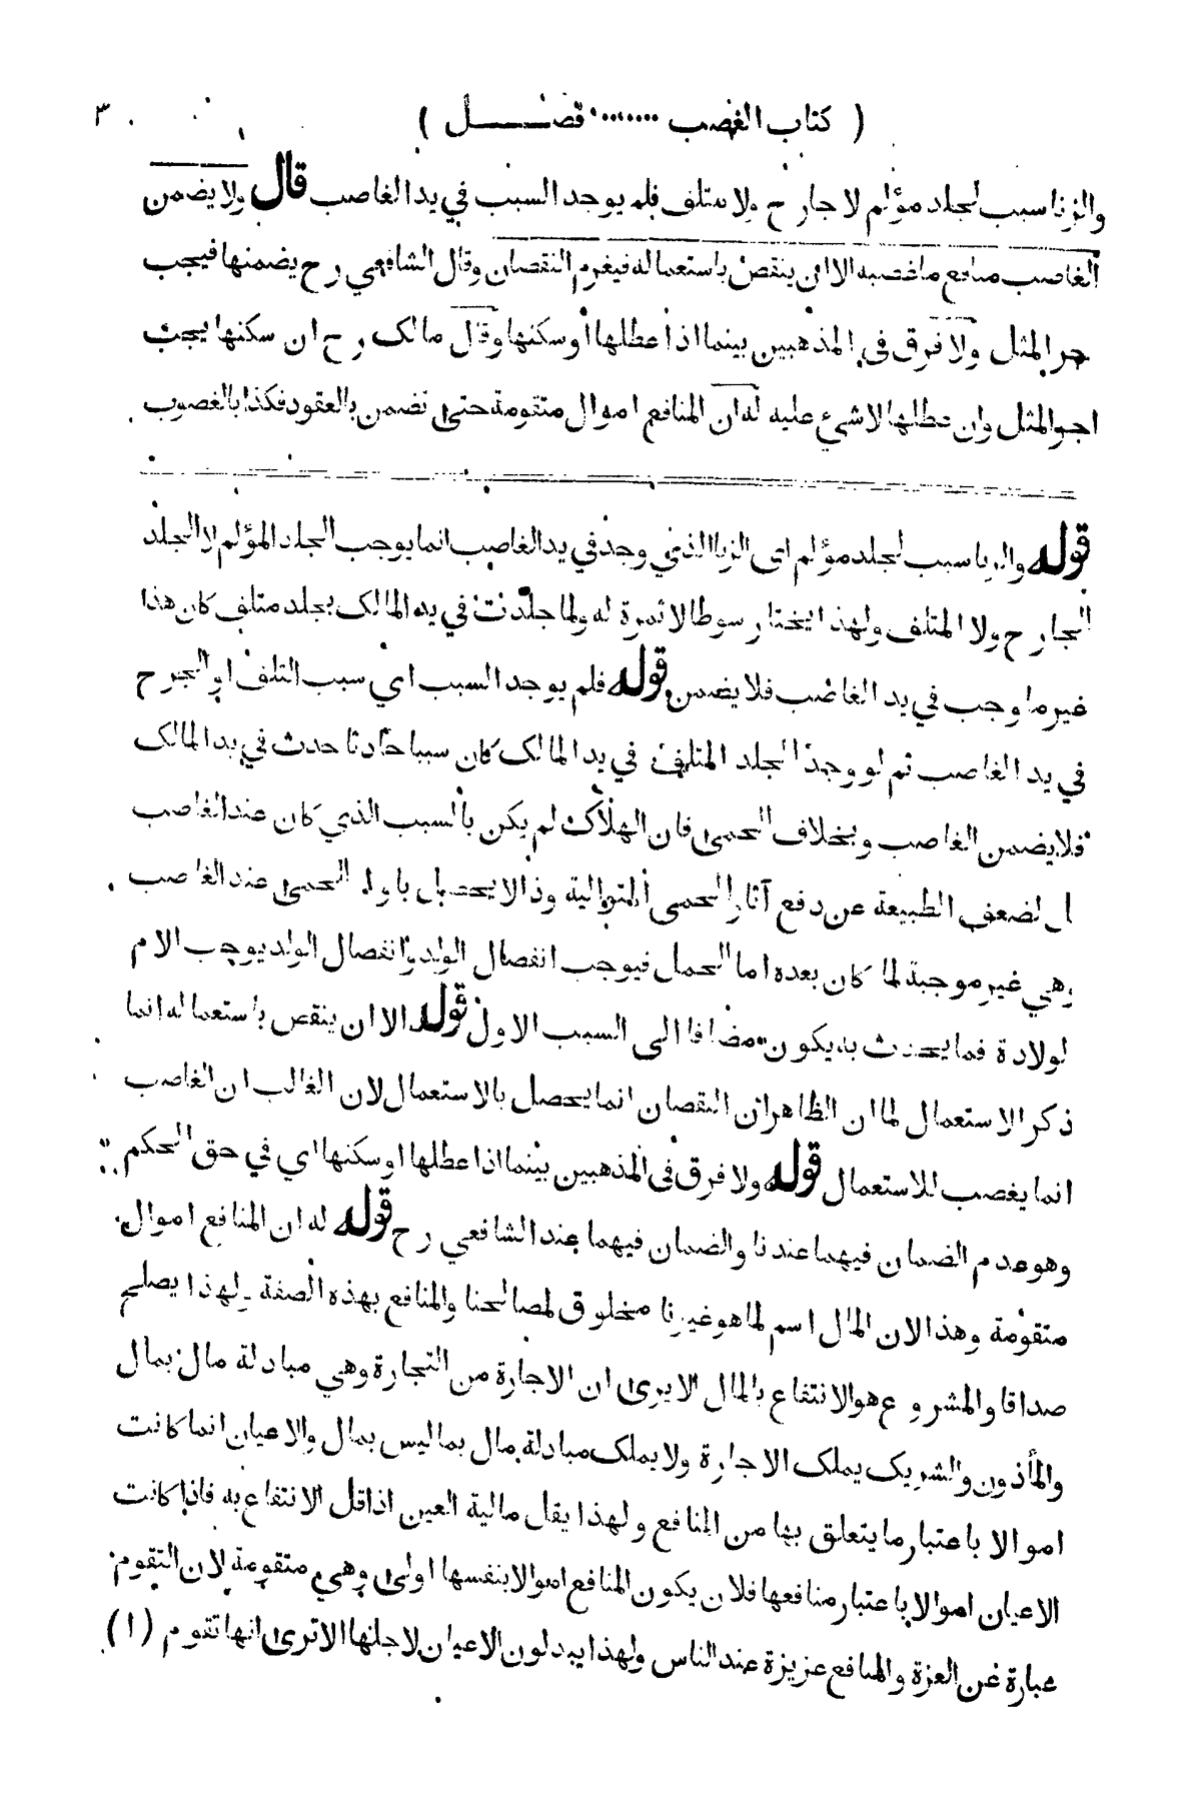 ( كتاب الغصب ....... فصل ) ٣
والزنا سبب لجلد مؤلم لا جارح ولا متلف فلم يوجد السبب في يد الغاصب قال ولا يضمن
الغاصب منافع ما غصبه الا ان ينقص باستعماله فيغرم النقصان وقال الشافعي رح يضمنها فيجب
جر المثل ولا فرق في المذهبين بينما اذا عطلها او سكنها وقال مالك رح ان سكنها يجب
اجر المثل وان عطلها لا شيء عليه له ان المنافع اموال متقومة حتى تضمن بالعقود فكذا بالغصوب
قوله والزنا سبب لجلد مؤلم اى الزنا الذي وجد في يد الغاصب انما يوجب الجلد المؤلم لا الجلد
الجارح ولا المتلف ولهذا يختار سوطا لا ثمرة له ولما جلدت في يد المالك بجلد متلف كان هذا
غير ما وجب في يد الغاصب فلا يضمن قوله فلم يوجد السبب اي سبب التلف او الجرح
في يد الغاصب ثم لو وجد الجلد المتلف في يد المالك كان سببا حادثا حدث في يد المالك
فلا يضمن الغاصب وبخلاف الحمى فان الهلاك لم يكن بالسبب الذي كان عند الغاصب
ل لضعف الطبيعة عن دفع آثار الحمى المتوالية وذا لا يحصل باول الحمى عند الغاصب
وهي غير موجبة لما كان بعده اما الحمل فيوجب انفصال الولد وانفصال الولد يوجب الام
لولادة فما يحدث به يكون مضافا الى السبب الاول قوله الا ان ينقص باستعماله انما
ذكر الاستعمال لما ان الظاهر ان النقصان انما يحصل بالاستعمال لان الغالب ان الغاصب
انما يغصب للاستعمال قوله ولا فرق في المذهبين بينما اذا عطلها او سكنها اي في حق الحكم
وهو عدم الضمان فيهما عندنا والضمان فيهما عند الشافعي رح قوله له ان المنافع اموال
متقومة وهذا لان المال اسم لما هو غيرنا مخلوق لمصالحنا والمنافع بهذه الصفة ولهذا يصلح
صداقا والمشروع هو الانتفاع بالمال الا يرى ان الاجارة من التجارة وهي مبادلة مال بمال
والمأذون والشريك يملك الاجارة ولا يملك مبادلة مال بما ليس بمال والاعيان انما كانت
اموالا باعتبار ما يتعلق بها من المنافع ولهذا يقل مالية العين اذا قل الانتفاع به فاذا كانت
الاعيان اموالا باعتبار منافعها فلان يكون المنافع اموالا بنفسها اولى وهي متقومة لان التقوم
عبارة عن العزة والمنافع عزيزة عند الناس ولهذا يبدلون الاعيان لاجلها الا ترى انها تقوم (١)